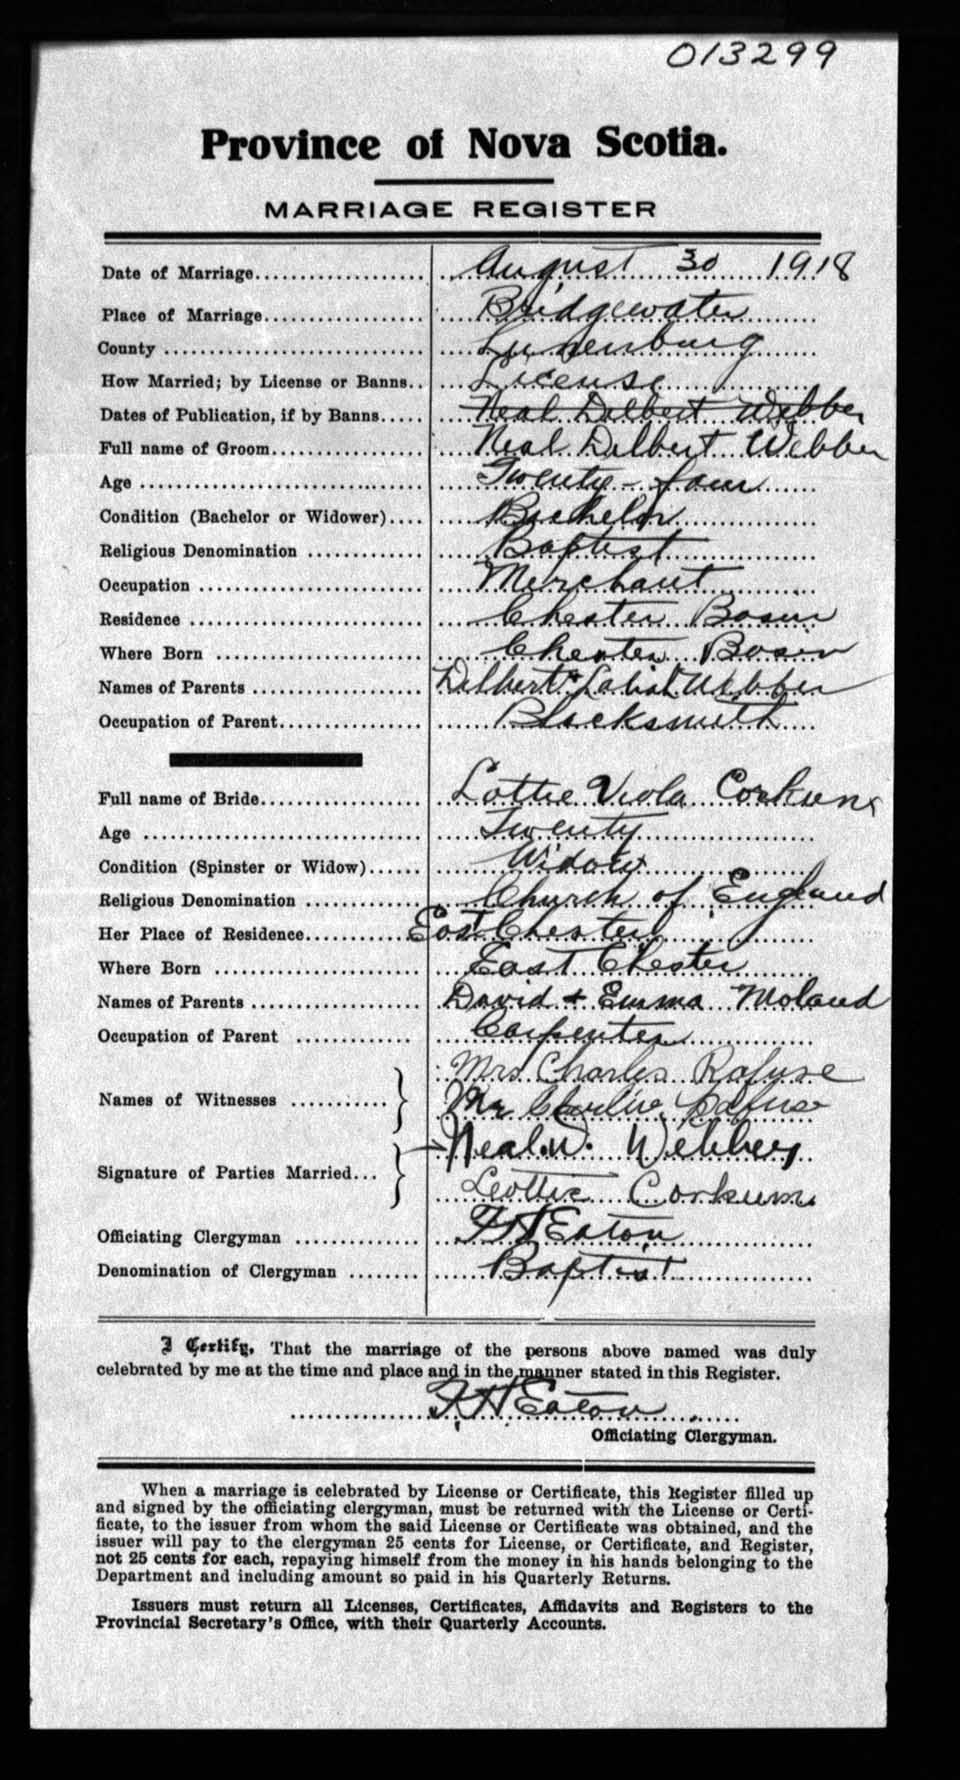 013299
Province of Nova Scotia.
MARRIAGE REGISTER
Date of Marriage.................... August 30 1918
Place of Marriage................... Bridgewater
County ............................. Lunenburg
How Married; by License or Banns.. License
Dates of Publication, if by Banns..... Neal Delbert Webber
Full name of Groom.................. Neal Delbert Webber
Age ................................ Twenty-four
Condition (Bachelor or Widower).... Bachelor
Religious Denomination ............. Baptist
Occupation ......................... Merchant
Residence .......................... Chester Basin
Where Born ......................... Chester Basin
Names of Parents ................... Delbert + Webber
Occupation of Parent................ Blacksmith
Full name of Bride.................. Lottie Viola Corkum
Age ................................ Twenty
Condition (Spinster or Widow)...... Widow
Religious Denomination ............. Church of England
Her Place of Residence............. East Chester
Where Born ......................... East Chester
Names of Parents ................... David + Emma Moland
Occupation of Parent ............... Carpenter
Names of Witnesses ........... } Mrs Charles Rafuse
Mr Charlie Rafuse
Signature of Parties Married... } Neal.D. Webber
Lottie Corkum
Officiating Clergyman .............. F H Eaton
Denomination of Clergyman ........ Baptist
I Certify, That the marriage of the persons above named was duly
celebrated by me at the time and place and in the manner stated in this Register.
F. H Eaton
Officiating Clergyman.
When a marriage is celebrated by License or Certificate, this Register filled up
and signed by the officiating clergyman, must be returned with the License or Certi-
ficate, to the issuer from whom the said License or Certificate was obtained, and the
issuer will pay to the clergyman 25 cents for License, or Certificate, and Register,
not 25 cents for each, repaying himself from the money in his hands belonging to the
Department and including amount so paid in his Quarterly Returns.
Issuers must return all Licenses, Certificates, Affidavits and Registers to the
Provincial Secretary's Office, with their Quarterly Accounts.